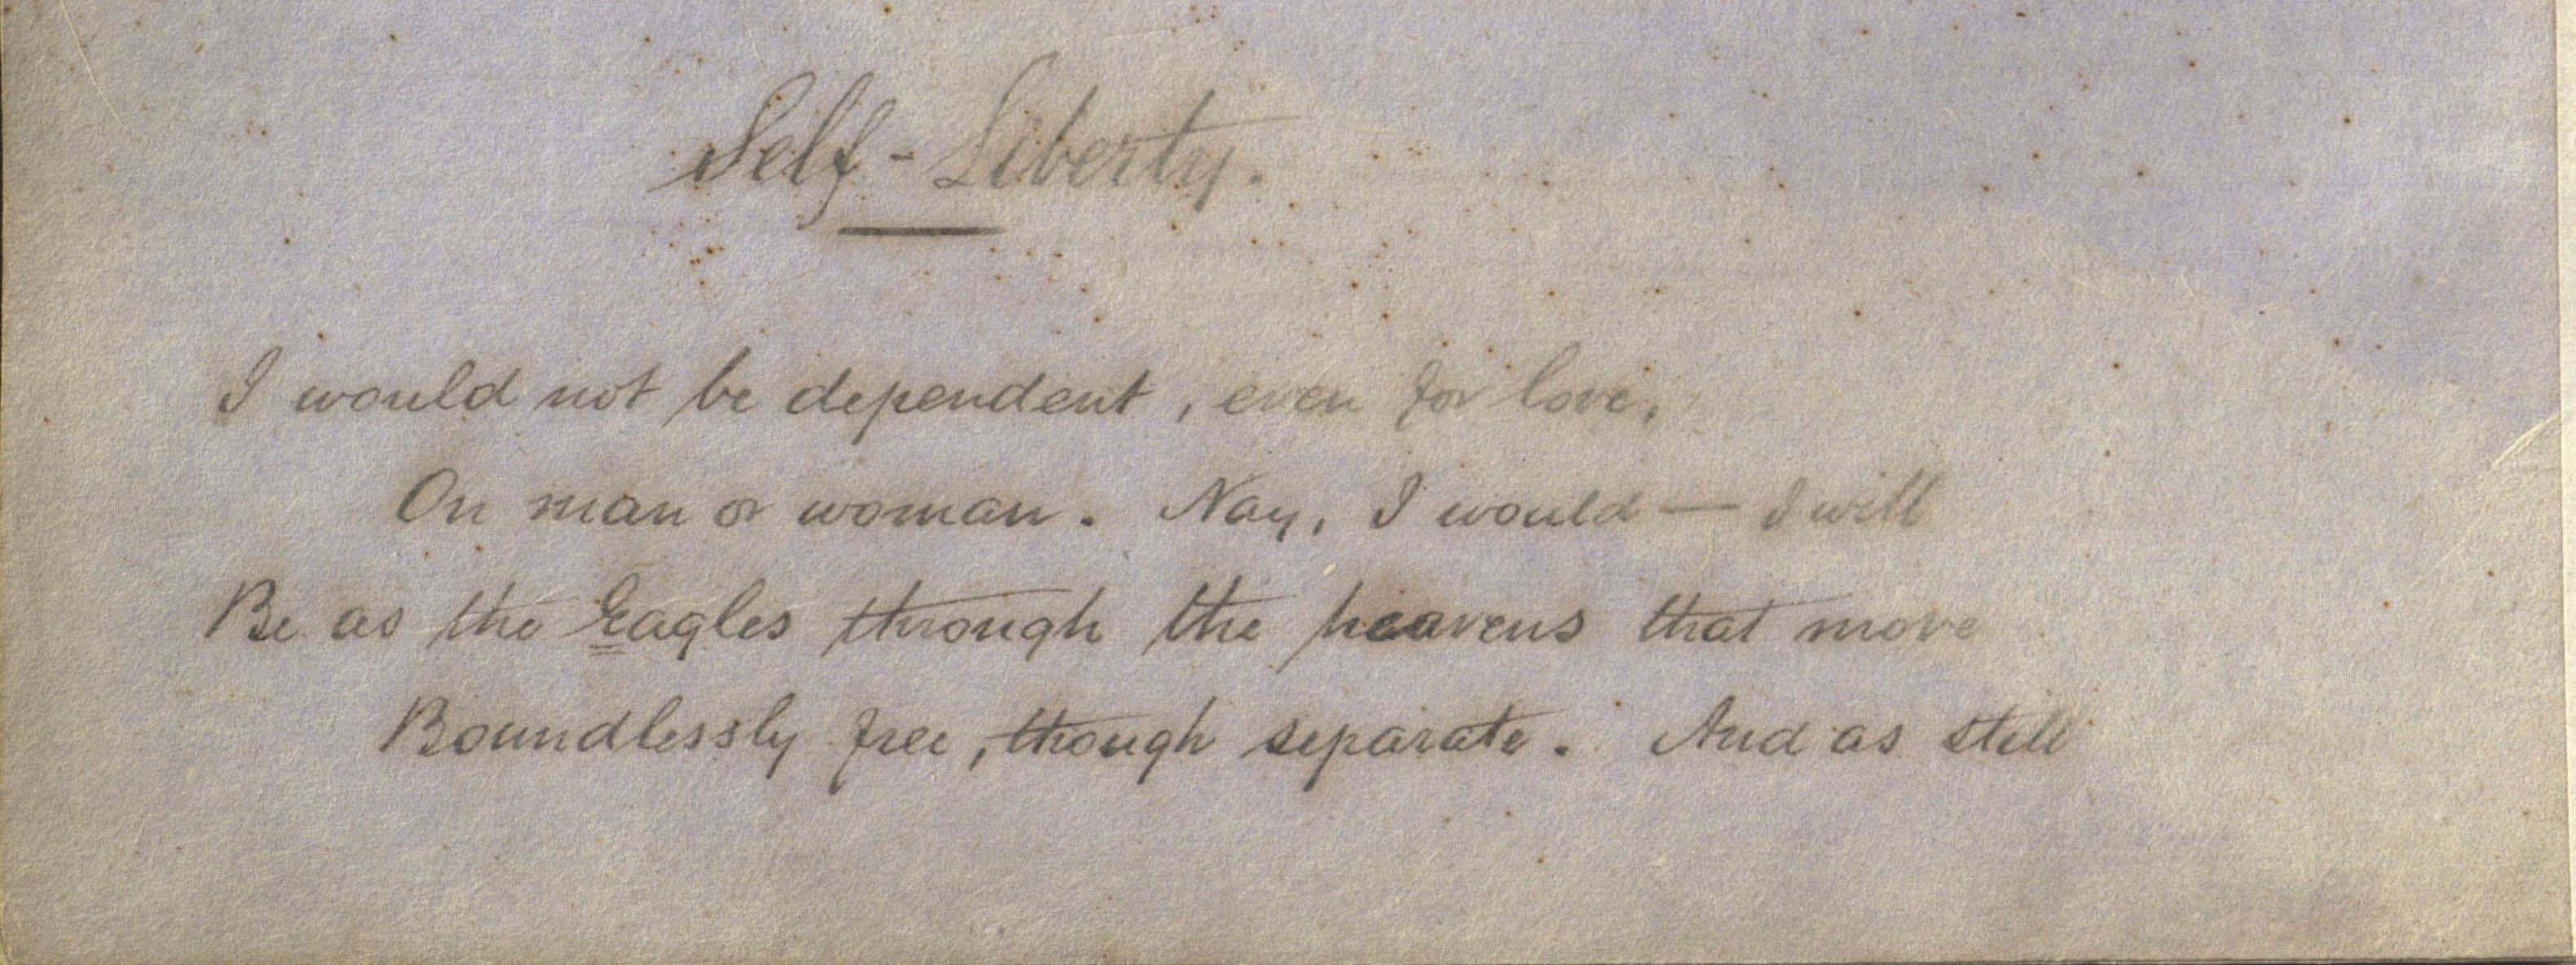 Self-Liberty.
I would not be dependent, even for love,
On man or woman. Nay, I would — I will
Be as the Eagles through the heavens that move
Boundlessly free, though separate. And as still